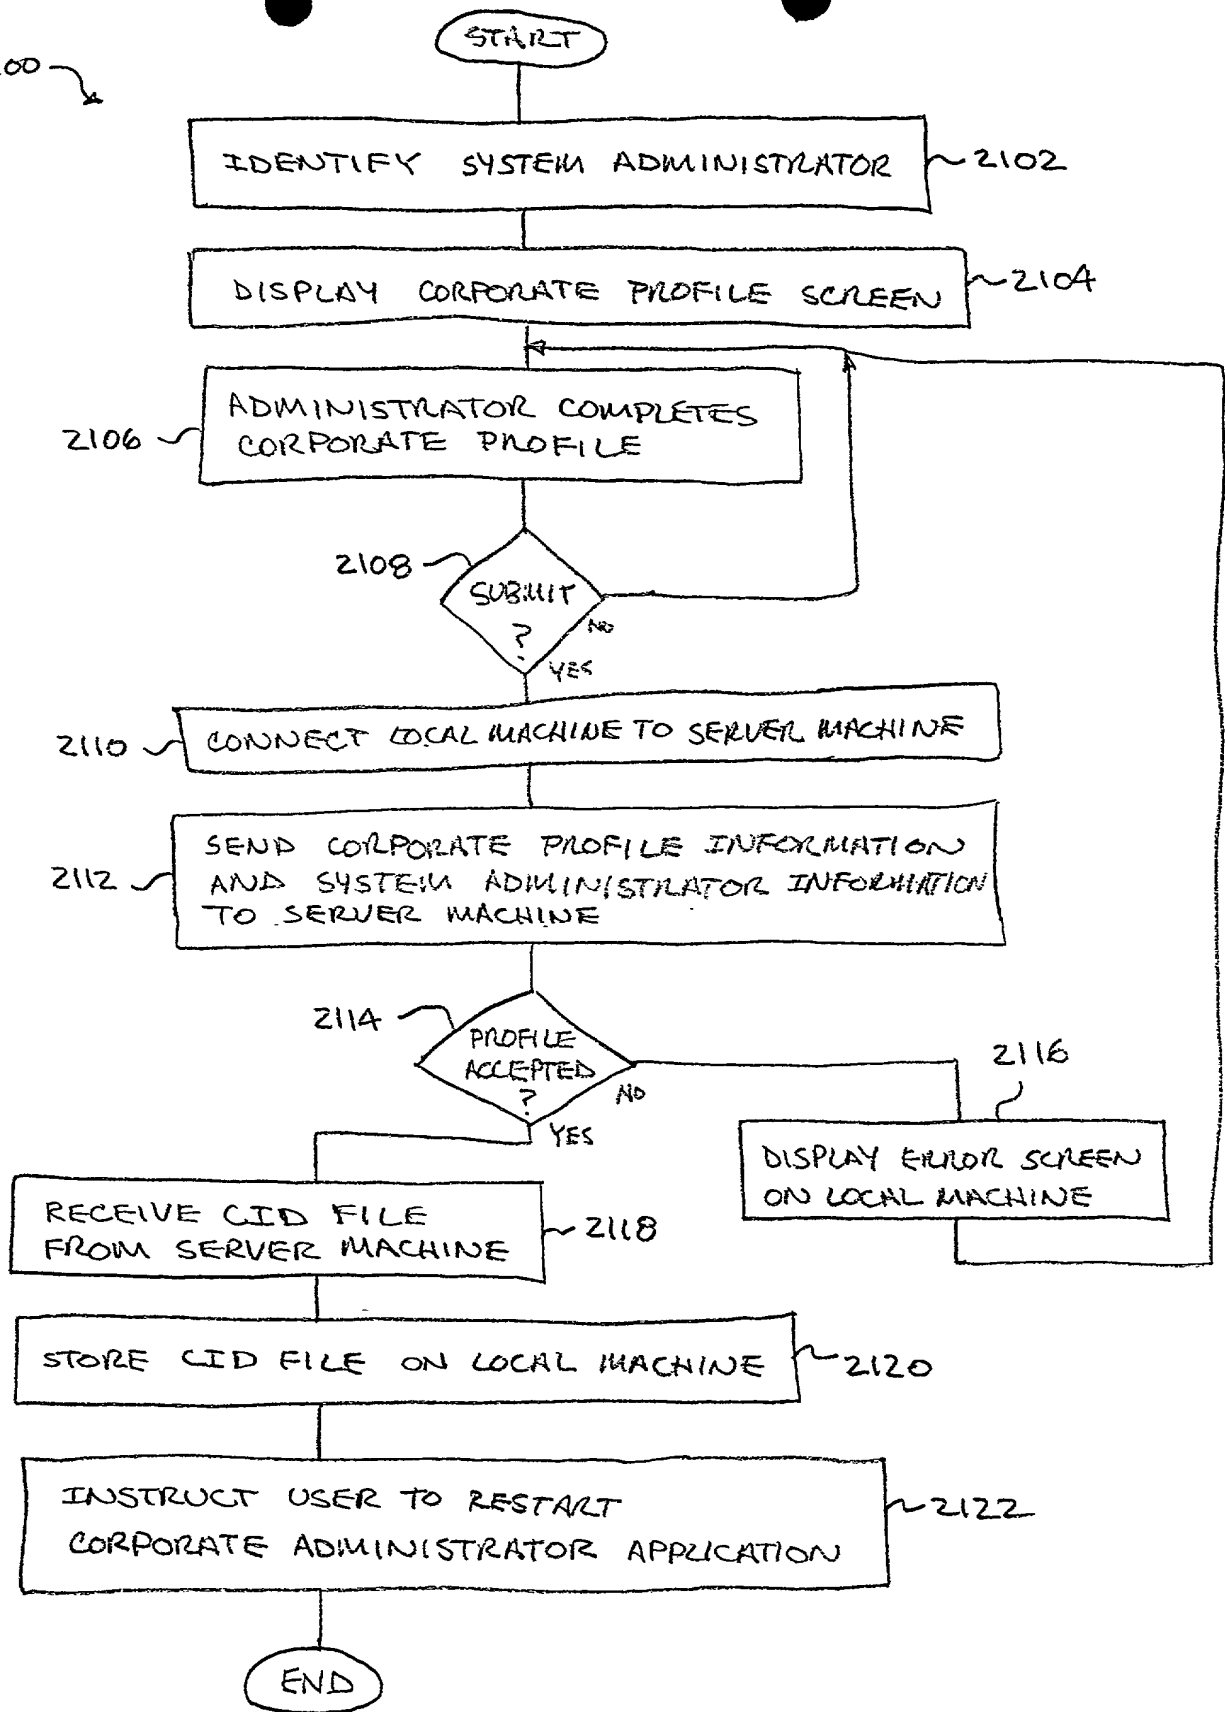 START
00
IDENTIFY SYSTEM ADMINISTRATOR
2102
DISPLAY CORPORATE PROFILE SCREEN
2104
ADMINISTRATOR COMPLETES
CORPORATE PROFILE
2106
2108
SUBMIT
?
NO
YES
2110
CONNECT LOCAL MACHINE TO SERVER MACHINE
SEND CORPORATE PROFILE INFORMATION
AND SYSTEM ADMINISTRATOR INFORMATION
TO SERVER MACHINE
2112
2114
PROFILE
ACCEPTED
?
NO
YES
2116
DISPLAY ERROR SCREEN
ON LOCAL MACHINE
RECEIVE CID FILE
FROM SERVER MACHINE
2118
STORE CID FILE ON LOCAL MACHINE
2120
INSTRUCT USER TO RESTART
CORPORATE ADMINISTRATOR APPLICATION
2122
END